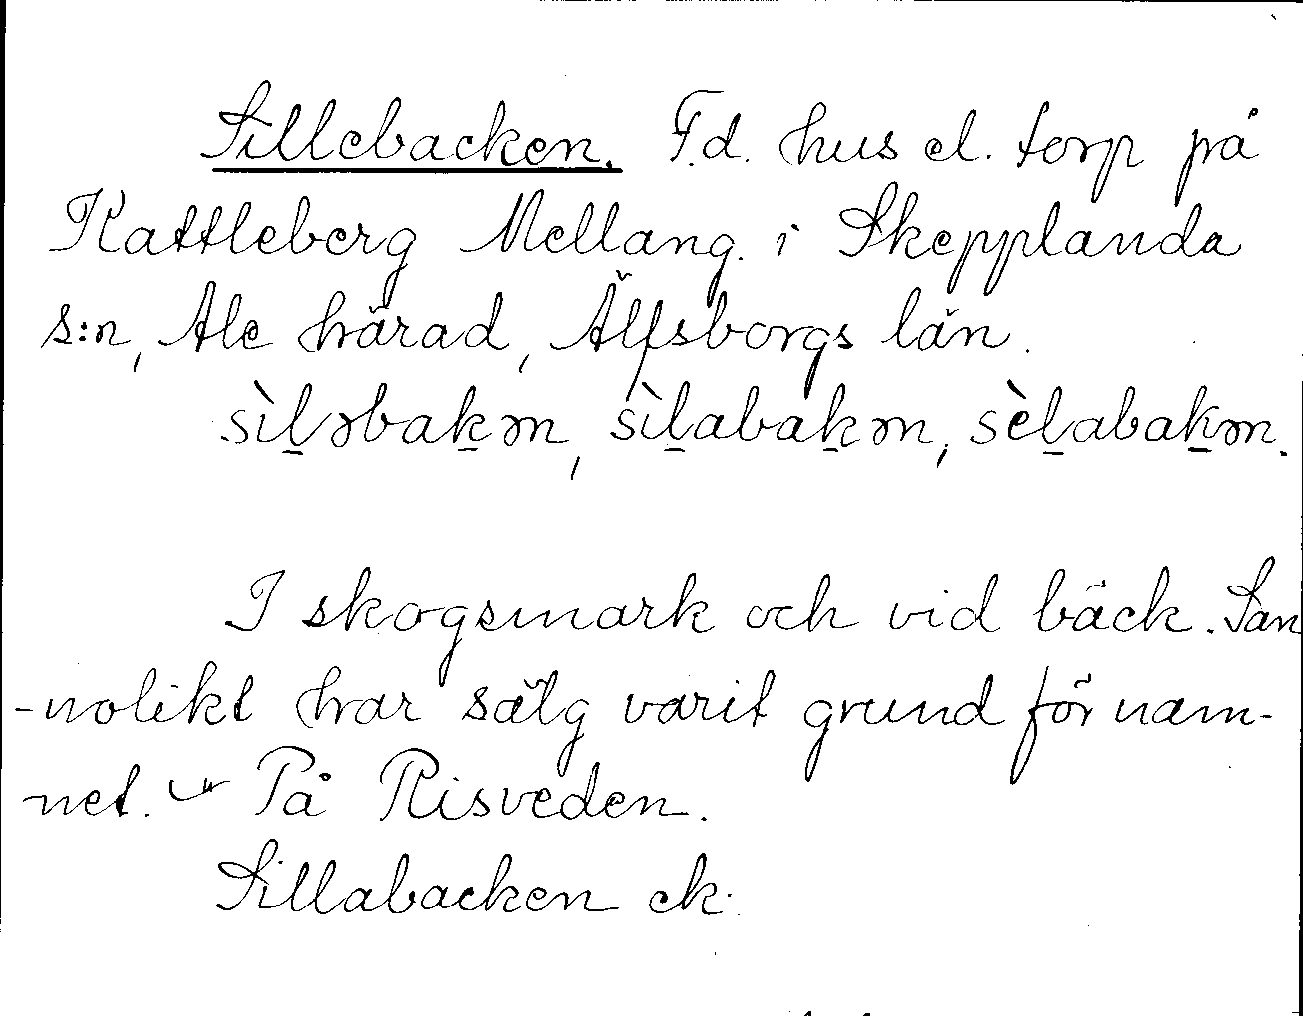 Sillebacken. F.d. hus el. torp på
Kattleberg Mellang. i Skepplanda
s:n, Ale härad, Älfsborgs län.
sìl̠əbak̠ən, sìl̠abak̠ən, sèl̠abak̠ən.
I skogsmark och vid bäck. San
-nolikt har sälg varit grund för nam-
net. På Risveden.
Sillabacken ek.